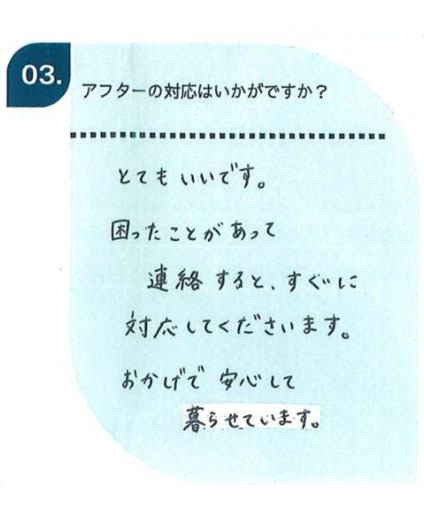 03.
アフターの対応はいかがですか？
とてもいいです。
困ったことがあって
連絡すると、すぐに
対応してくださいます。
おかげで安心して
暮らせています。